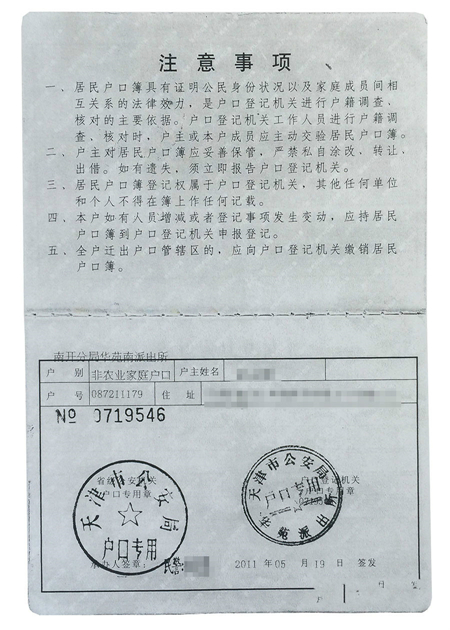 注意事项
一、居民户口簿具有证明公民身份状况以及家庭成员间相
互关系的法律效力，是户口登记机关进行户籍调查、
核对的主要依据。户口登记机关工作人员进行户籍调
查、核对时，户主或本户成员应主动交验居民户口簿。
二、户主对居民户口簿应妥善保管，严禁私自涂改、转让、
出借。如有遗失，须立即报告户口登记机关。
三、居民户口簿登记权属于户口登记机关，其他任何单位
和个人不得在簿上作任何记载。
四、本户如有人员增减或者登记事项发生变动，应持居民
户口簿到户口登记机关申报登记。
五、全户迁出户口管辖区的，应向户口登记机关缴销居民
户口簿。
南开分局华苑南派出所
户 别 非农业家庭户口 户主姓名
户 号 087211179 住 址
№ 0719546
省级公安机关
户口专用章
天津市公安局
户口专用
户口登记机关
天津市公安局
户口专用
华苑派出所
承办人签章： 民警
2011 年 05 月 19 日 签发